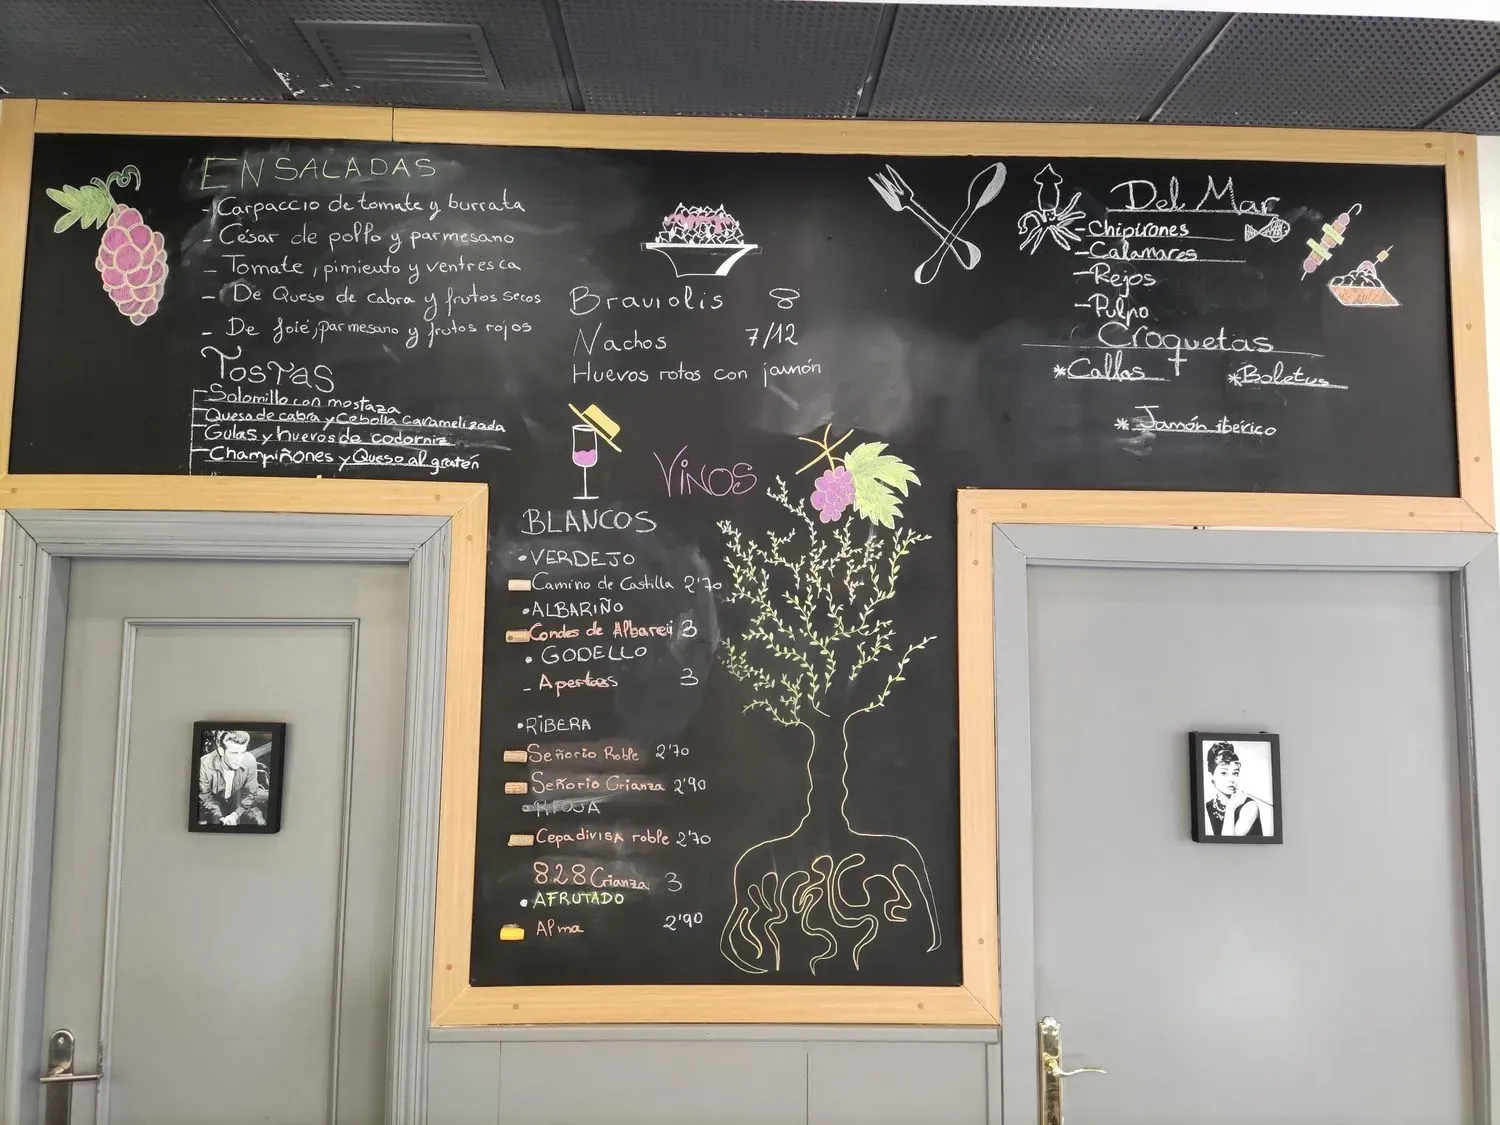 ENSALADAS
- Carpaccio de tomate y burrata
- César de pollo y parmesano
- Tomate, pimiento y ventresca
- De Queso de cabra y frutos secos
- De foie, parmesano y frutos rojos
Tostas
- Solomillo con mostaza
- Queso de cabra y Cebolla caramelizada
- Gulas y huevos de codorniz
- Champiñones y Queso al gratén
Braviolis 8
Nachos 7/12
Huevos rotos con jamón
Del Mar
- Chipirones
- Calamares
- Rejos
- Pulpo
Croquetas
* Callos
* Boletus
* Jamón ibérico
VINOS
BLANCOS
• VERDEJO
Camino de Castilla 2'70
• ALBARIÑO
Condes de Albarei 3
• GODELLO
- Apertas 3
• RIBERA
Señorio Roble 2'70
Señorio Crianza 2'90
• RIOJA
Cepa divisa roble 2'70
828 Crianza 3
• AFRUTADO
Alma 2'90